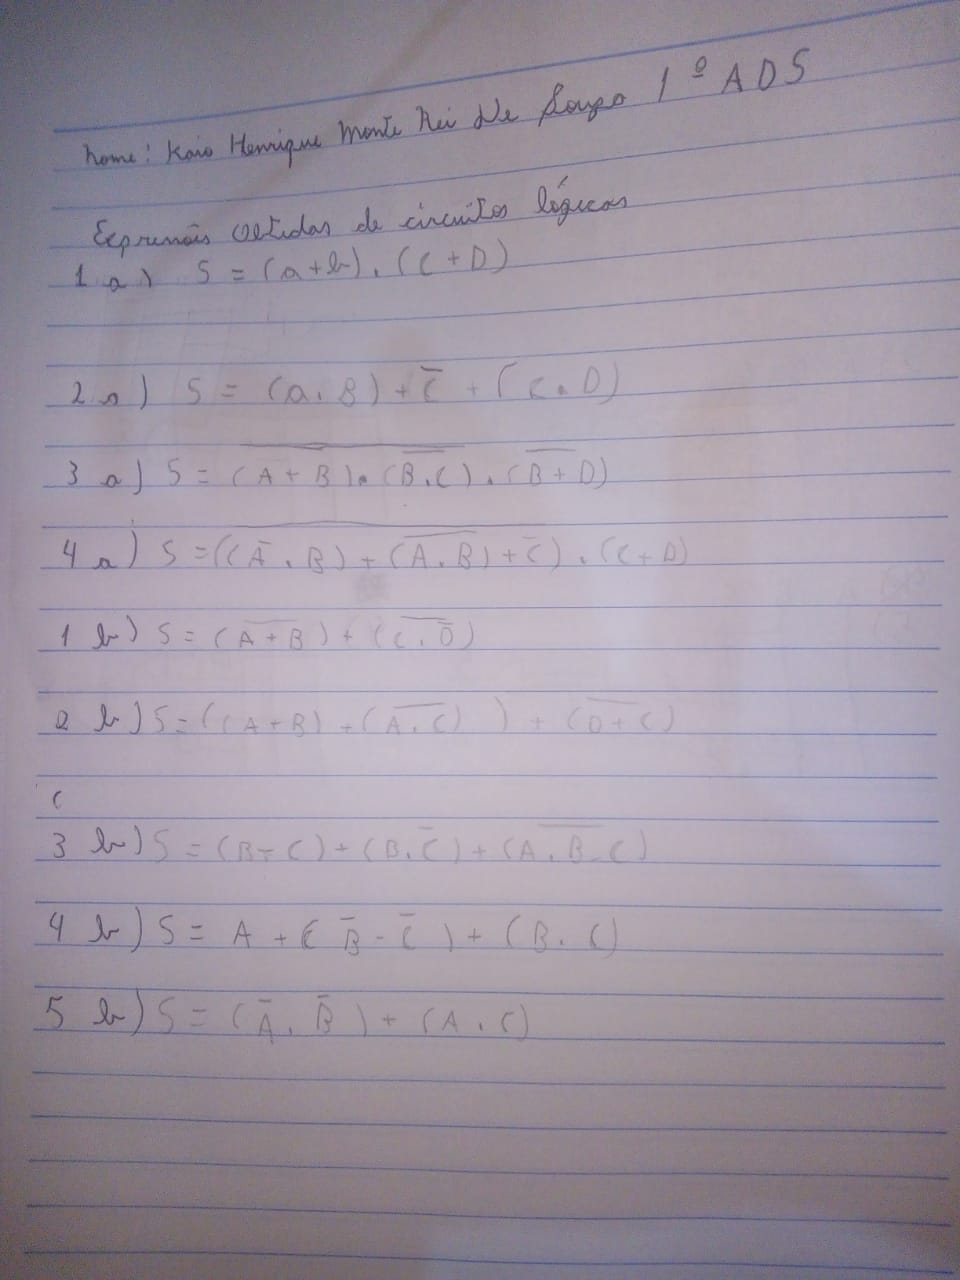 nome: Kaio Henrique Monte Rei De Souza 1º ADS
Expressões obtidas de circuitos lógicos
1 a) S = (a+b).(C+D)
2 a) S = (a.B)+C̅+(C.D)
3 a) S = (A̅ ̅+̅ ̅B̅).(B̅.̅C̅).(B̅+̅D̅)
4 a) S = ((A̅.B)+(A̅.̅B̅)+C̅).(C+D)
1 b) S = (A̅+̅B̅)+(C̅.̅D̅)
2 b) S = ((A+B)+(A̅.̅C̅))+(D̅+̅C̅)
C
3 b) S = (B+C)+(B.C̅)+(A̅.̅B̅.C)
4 b) S = A+(B̅-C̅)+(B.C)
5 b) S = (A̅.B̅)+(A.C)